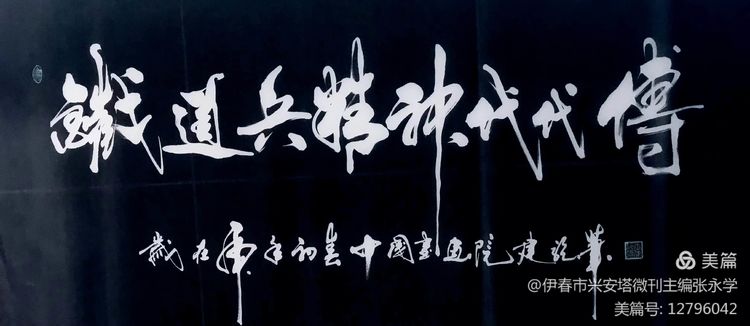 鐵道兵精神代代傳
歲在虎年初春中國書画院建
美篇
@伊春市米安塔微刊主编张永学
美篇号: 12796042